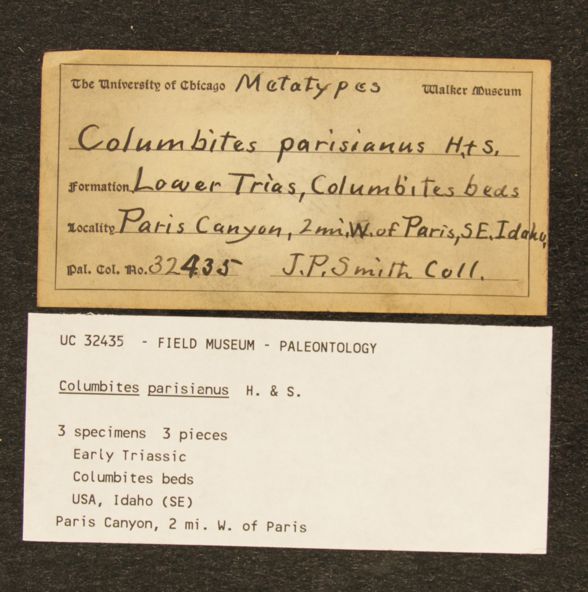 The University of Chicago Metatypes Walker Museum
Columbites parisianus H.+S.
Formation Lower Trias, Columbites beds
Locality Paris Canyon, 2 mi. W. of Paris, S.E. Idaho,
Pal. Col. No. 32435 J.P. Smith Coll.
UC 32435 - FIELD MUSEUM - PALEONTOLOGY
Columbites parisianus H. & S.
3 specimens 3 pieces
Early Triassic
Columbites beds
USA, Idaho (SE)
Paris Canyon, 2 mi. W. of Paris